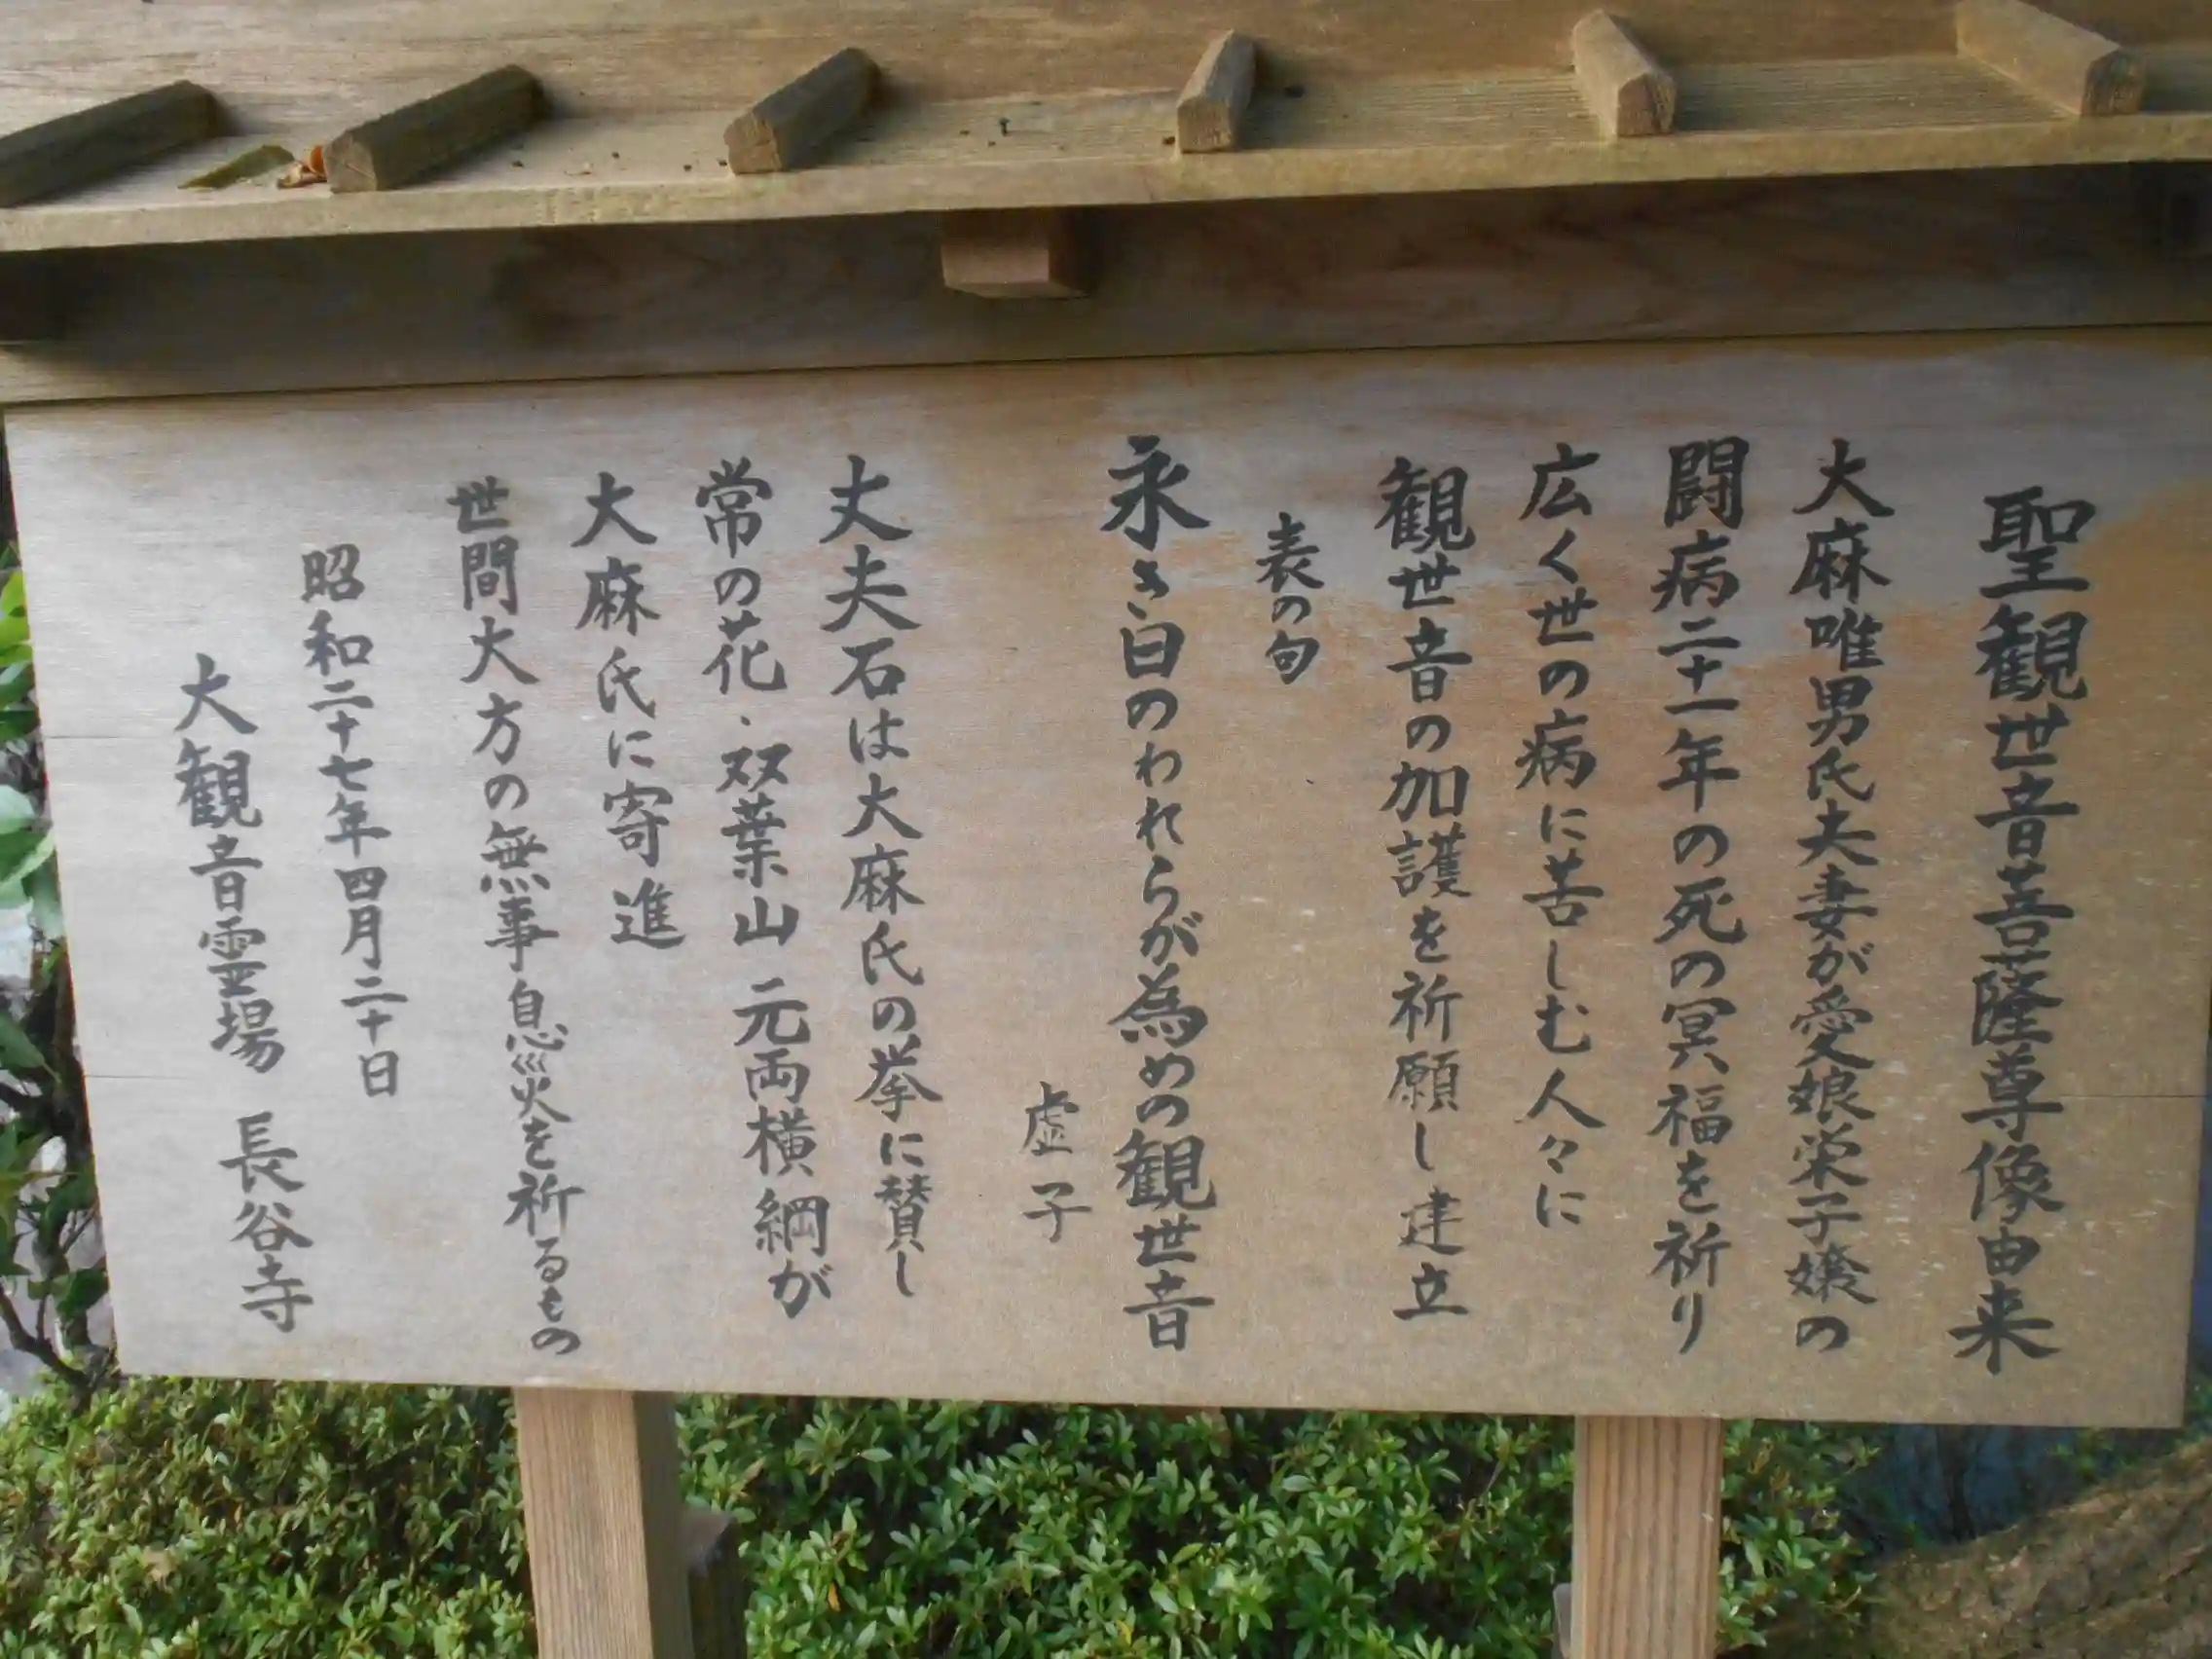 聖観世音菩薩尊像由来
大麻唯男氏夫妻が愛娘栄子嬢の
闘病二十一年の死の冥福を祈り
広く世の病に苦しむ人々に
観世音の加護を祈願し建立
表の句
永き日のわれらが為めの観世音
虚子
丈夫石は大麻氏の挙に賛し
常の花・双葉山 元両横綱が
大麻氏に寄進
世間大方の無事息災を祈るもの
昭和二十七年四月二十日
大観音霊場 長谷寺